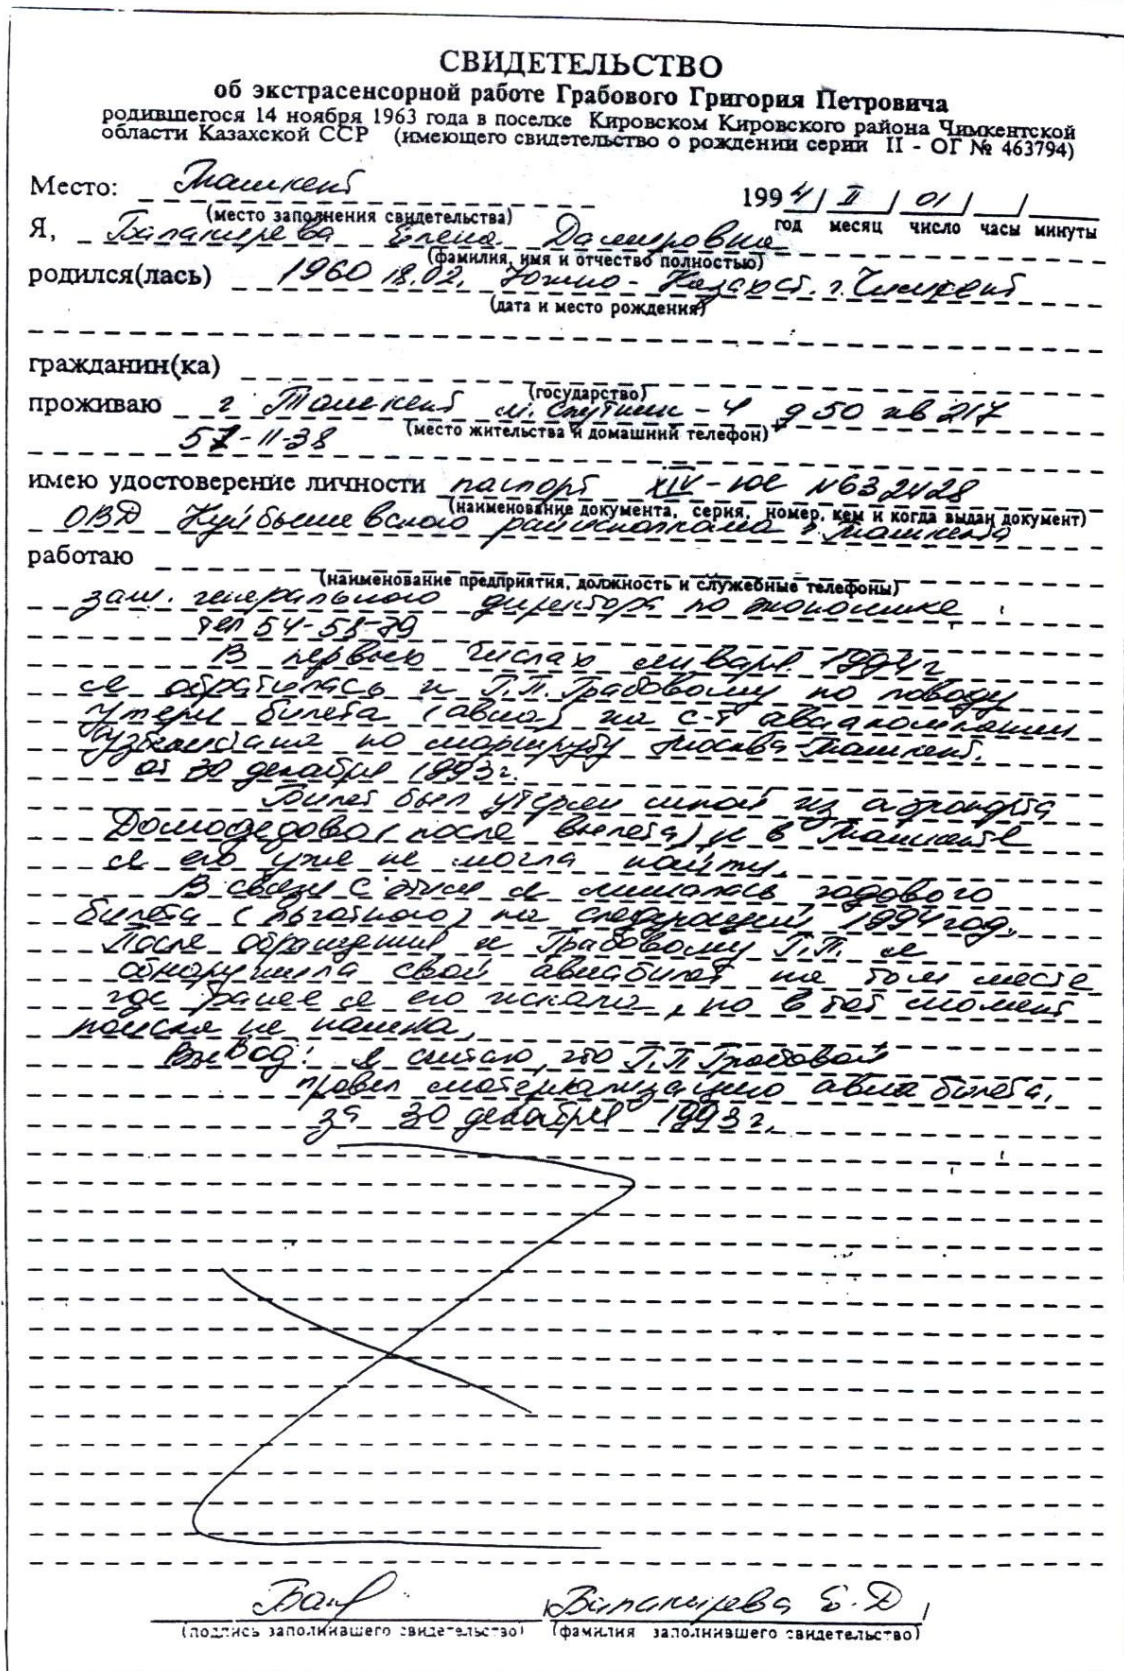 СВИДЕТЕЛЬСТВО
об экстрасенсорной работе Грабового Григория Петровича
родившегося 14 ноября 1963 года в поселке Кировском Кировского района Чимкентской
области Казахской ССР (имеющего свидетельство о рождении серии II - ОГ № 463794)
Место: Ташкент 1994 / II / 01 / /
(место заполнения свидетельства) год месяц число часы минуты
Я, Елена Дамировна
(фамилия, имя и отчество полностью)
родился(лась) 1960 18.02. Южно - Казахст. г. Чимкент
(дата и место рождения)
гражданин(ка)
(государство)
проживаю г Ташкент м. Спутник - 4 д 50 кв 217
57-11-38 (место жительства и домашний телефон)
имею удостоверение личности паспорт XIV - ЮС N632428
(наименование документа, серия, номер, кем и когда выдан документ)
ОВД Куйбышевского райисполкома г. Ташкента
работаю
(наименование предприятия, должность и служебные телефоны)
зам. генерального директора по экономике
тел 54-58-79
В первых числах января 1994 г
я обратилась к Г.П. Грабовому по поводу
утери билета (авиа) на с-т авиакомпании
Узбекистана по маршруту Москва-Ташкент.
от 30 декабря 1993г.
Билет был утерян мной из аэропорта
Домодедово (после вылета) и в Ташкенте
я его уже не могла найти.
В связи с этим я лишалась годового
билета (льготного) на следующий 1994 год.
После обращения к Грабовому Г.П. я
обнаружила свой авиабилет на том месте
где ранее я его искала, но в тот момент
поиска не нашла.
Вывод: я считаю, что Г.П Грабовой
провел материализацию авиабилета.
за 30 декабря 1993г.
Е.Д
(подпись заполнившего свидетельство) (фамилия заполнившего свидетельство)